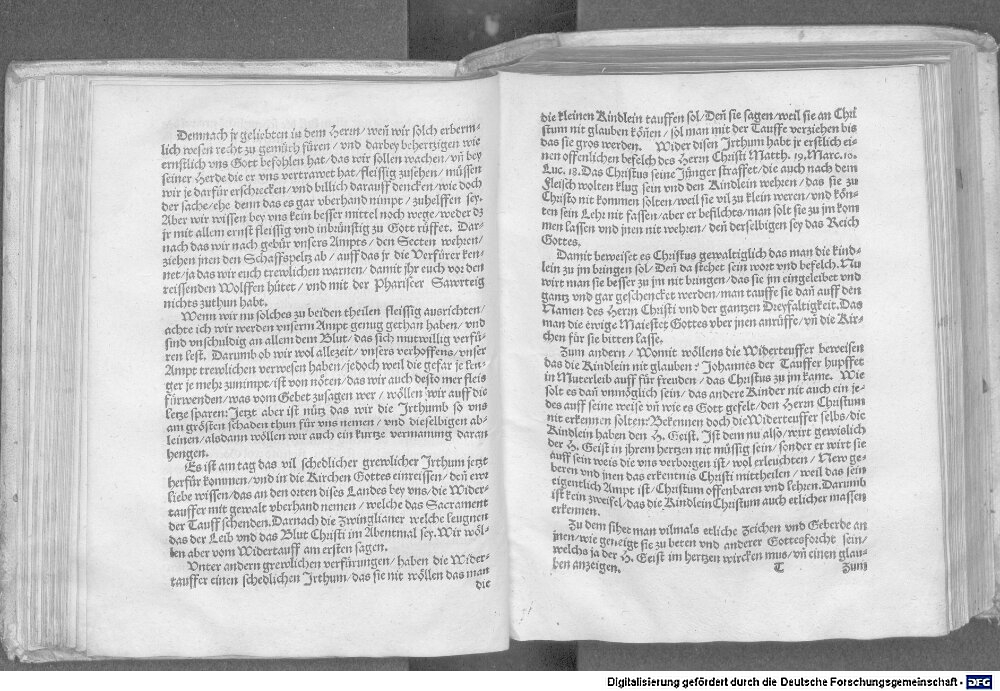 Demnach jr geliebten in dem Herrn/ weñ wir solch erberm-
lich wesen recht zu gemüth füren/ vnd darbey behertzigen wie
ernstlich vns Gott befohlen hat/ das wir sollen wachen/ vñ bey
seiner Herde die er vns vertrawet hat/ fleissig zusehen/ müssen
wir je darfür erschrecken/ vnd billich darauff dencken/ wie doch
der sache/ ehe denn das es gar vberhand nimpt/ zuhelffen sey.
Aber wir wissen bey vns kein besser mittel noch wege/ weder dz
jr mit allem ernst fleissig vnd inbrünstig zu Gott rüffet. Dar-
nach das wir nach gebür vnsers Ampts/ den Secten wehren/
ziehen jnen den Schaffspeltz ab/ auff das jr die Verfürer ken-
net/ ja das wir euch trewlichen warnen/ damit jhr euch vor den
reissenden Wolffen hütet/ vnd mit der Phariseer Sawrteig
nichts zuthun habt.
Wenn wir nu solches zu beiden theilen fleissig ausrichten/
achte ich wir werden vnserm Ampt genug gethan haben/ vnd
sind vnschuldig an allem dem Blut/ das sich mutwillig verfü-
ren lest. Darumb ob wir wol allezeit/ vnsers verhoffens/ vnser
Ampt trewlichen verwesen haben/ jedoch weil die gefar je len-
ger je mehr zunimpt/ ist von nöten/ das wir auch desto mer fleis
fürwenden/ was vom Gebet zusagen wer/ wöllen wir auff die
letze sparen: Jetzt aber ist nütz das wir die Irthumb so vns
am grösten schaden thun für vns nemen/ vnd dieselbigen ab-
leinen/ alsdann wöllen wir auch ein kurtze vermanung daran
hengen.
Es ist am tag das vil schedlicher grewlicher Irthum jetzt
herfür kommen/ vnd in die Kirchen Gottes einreissen/ deñ ewr
liebe wissen/ das an den orten dises Landes bey vns/ die Wider-
tauffer mit gewalt vberhand nemen/ welche das Sacrament
der Tauff schenden. Darnach die Zwinglianer welche leugnen
das der Leib vnd das Blut Christi im Abentmal sey. Wir wöl-
len aber vom Widertauff am ersten sagen.
Vnter andern grewlichen verfürungen/ haben die Wider-
tauffer einen schedlichen Irthum/ das sie nit wöllen das man
die
die kleinen Kindlein tauffen sol/ Deñ sie sagen/ weil sie an Chri
stum nit glauben köñen/ sol man mit der Tauffe verziehen bis
das sie gros werden. Wider disen Irthum habt jr erstlich ei-
nen offenlichen befelch des Herrn Christi Matth. 19. Marc. 10.
Luc. 18. Das Christus seine Jünger straffet/ die auch nach dem
Fleisch wolten klug sein vnd den Kindlein wehren/ das sie zu
Christo nit kommen solten/ weil sie vil zu klein weren/ vnd kön-
ten sein Lehr nit fassen/ aber er befilchts/ man solt sie zu jm kom
men lassen vnd jnen nit wehren/ deñ derselbigen sey das Reich
Gottes.
Damit beweiset es Christus gewaltiglich das man die kind-
lein zu jm bringen sol/ Deñ da stehet sein wort vnd befelch. Nu
wirt man sie besser zu jm nit bringen/ das sie jm eingeleibet vnd
gantz vnd gar geschencket werden/ man tauffe sie dañ auff den
Namen des Herrn Christi vnd der gantzen Dreyfaltigkeit. Das
man die ewige Maiestet Gottes vber jnen anrüffe/ vñ die Kir-
chen für sie bitten lasse.
Zum andern/ Womit wöllens die Widerteuffer beweisen
das die Kindlein nit glauben? Johannes der Tauffer hupffet
in Muterleib auff für freuden/ das Christus zu jm kame. Wie
solt es dañ vnmöglich sein/ das andere Kinder nit auch ein je-
des auff seine weise vñ wie es Gott gefelt/ den Herrn Christum
nit erkennen solten? Bekennen doch die Widerteuffer selbs/ die
Kindlein haben den H. Geist. Ist dem nu also/ wirt gewislich
der H. Geist in jhrem hertzen nit müssig sein/ sonder er wirt sie
auff sein weis die vns verborgen ist/ wol erleuchten/ New ge-
beren vnd jnen das erkentnis Christi mittheilen/ weil das sein
eigentlich Ampt ist/ Christum offenbaren vnd lehren. Darumb
ist kein zweifel/ das die Kindlein Christum auch etlicher massen
erkennen.
Zu dem sihet man vilmals etliche Zeichen vnd Geberde an
jnen/ wie geneigt sie zu beten vnd anderer Gottesforcht sein/
welchs ja der H. Geist im hertzen wircken mus/ vñ einen glau-
ben anzeigen.
T Zum
Digitalisierung gefördert durch die Deutsche Forschungsgemeinschaft - DFG